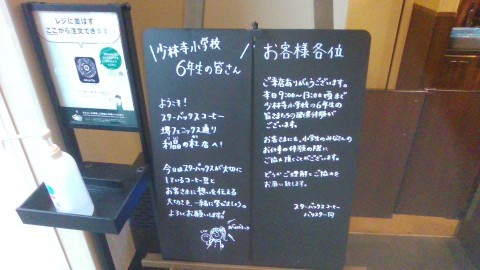 レジに並ばず
ここから注文できます
\少林寺小学校/
6年生の皆さん
ようこそ!
スターバックス コーヒー
堺フェニックス通り
店へ!
今日はスターバックスが大切に
しているコーヒー豆と
お客さまに想いを伝える
大切さを、一緒に学びましょう。
よろしくお願いします!
お客様各位
ご来店ありがとうございます。
本日9:00〜13:00頃まで
少林寺小学校の6年生の
皆さまたちの職業体験が
ございます。
お客さまにも、小学生のみなさんの
お仕事の体験の際に
ご協力頂くことがございます。
どうかご理解とご協力を
お願い致します。
スターバックス コーヒー
パートナー一同